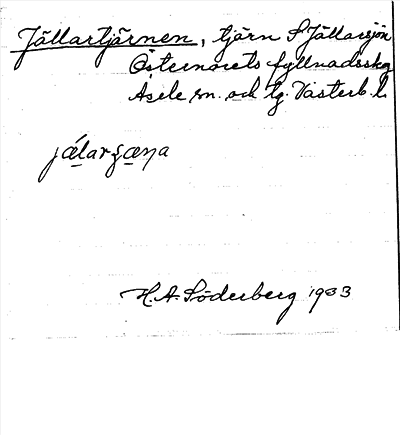 Jällartjärnen, tjärn S Jällarsjön
Östernorets fyllnadsskog
Åsele sn. och tg. Västerb. l.
H. A. Söderberg 1933